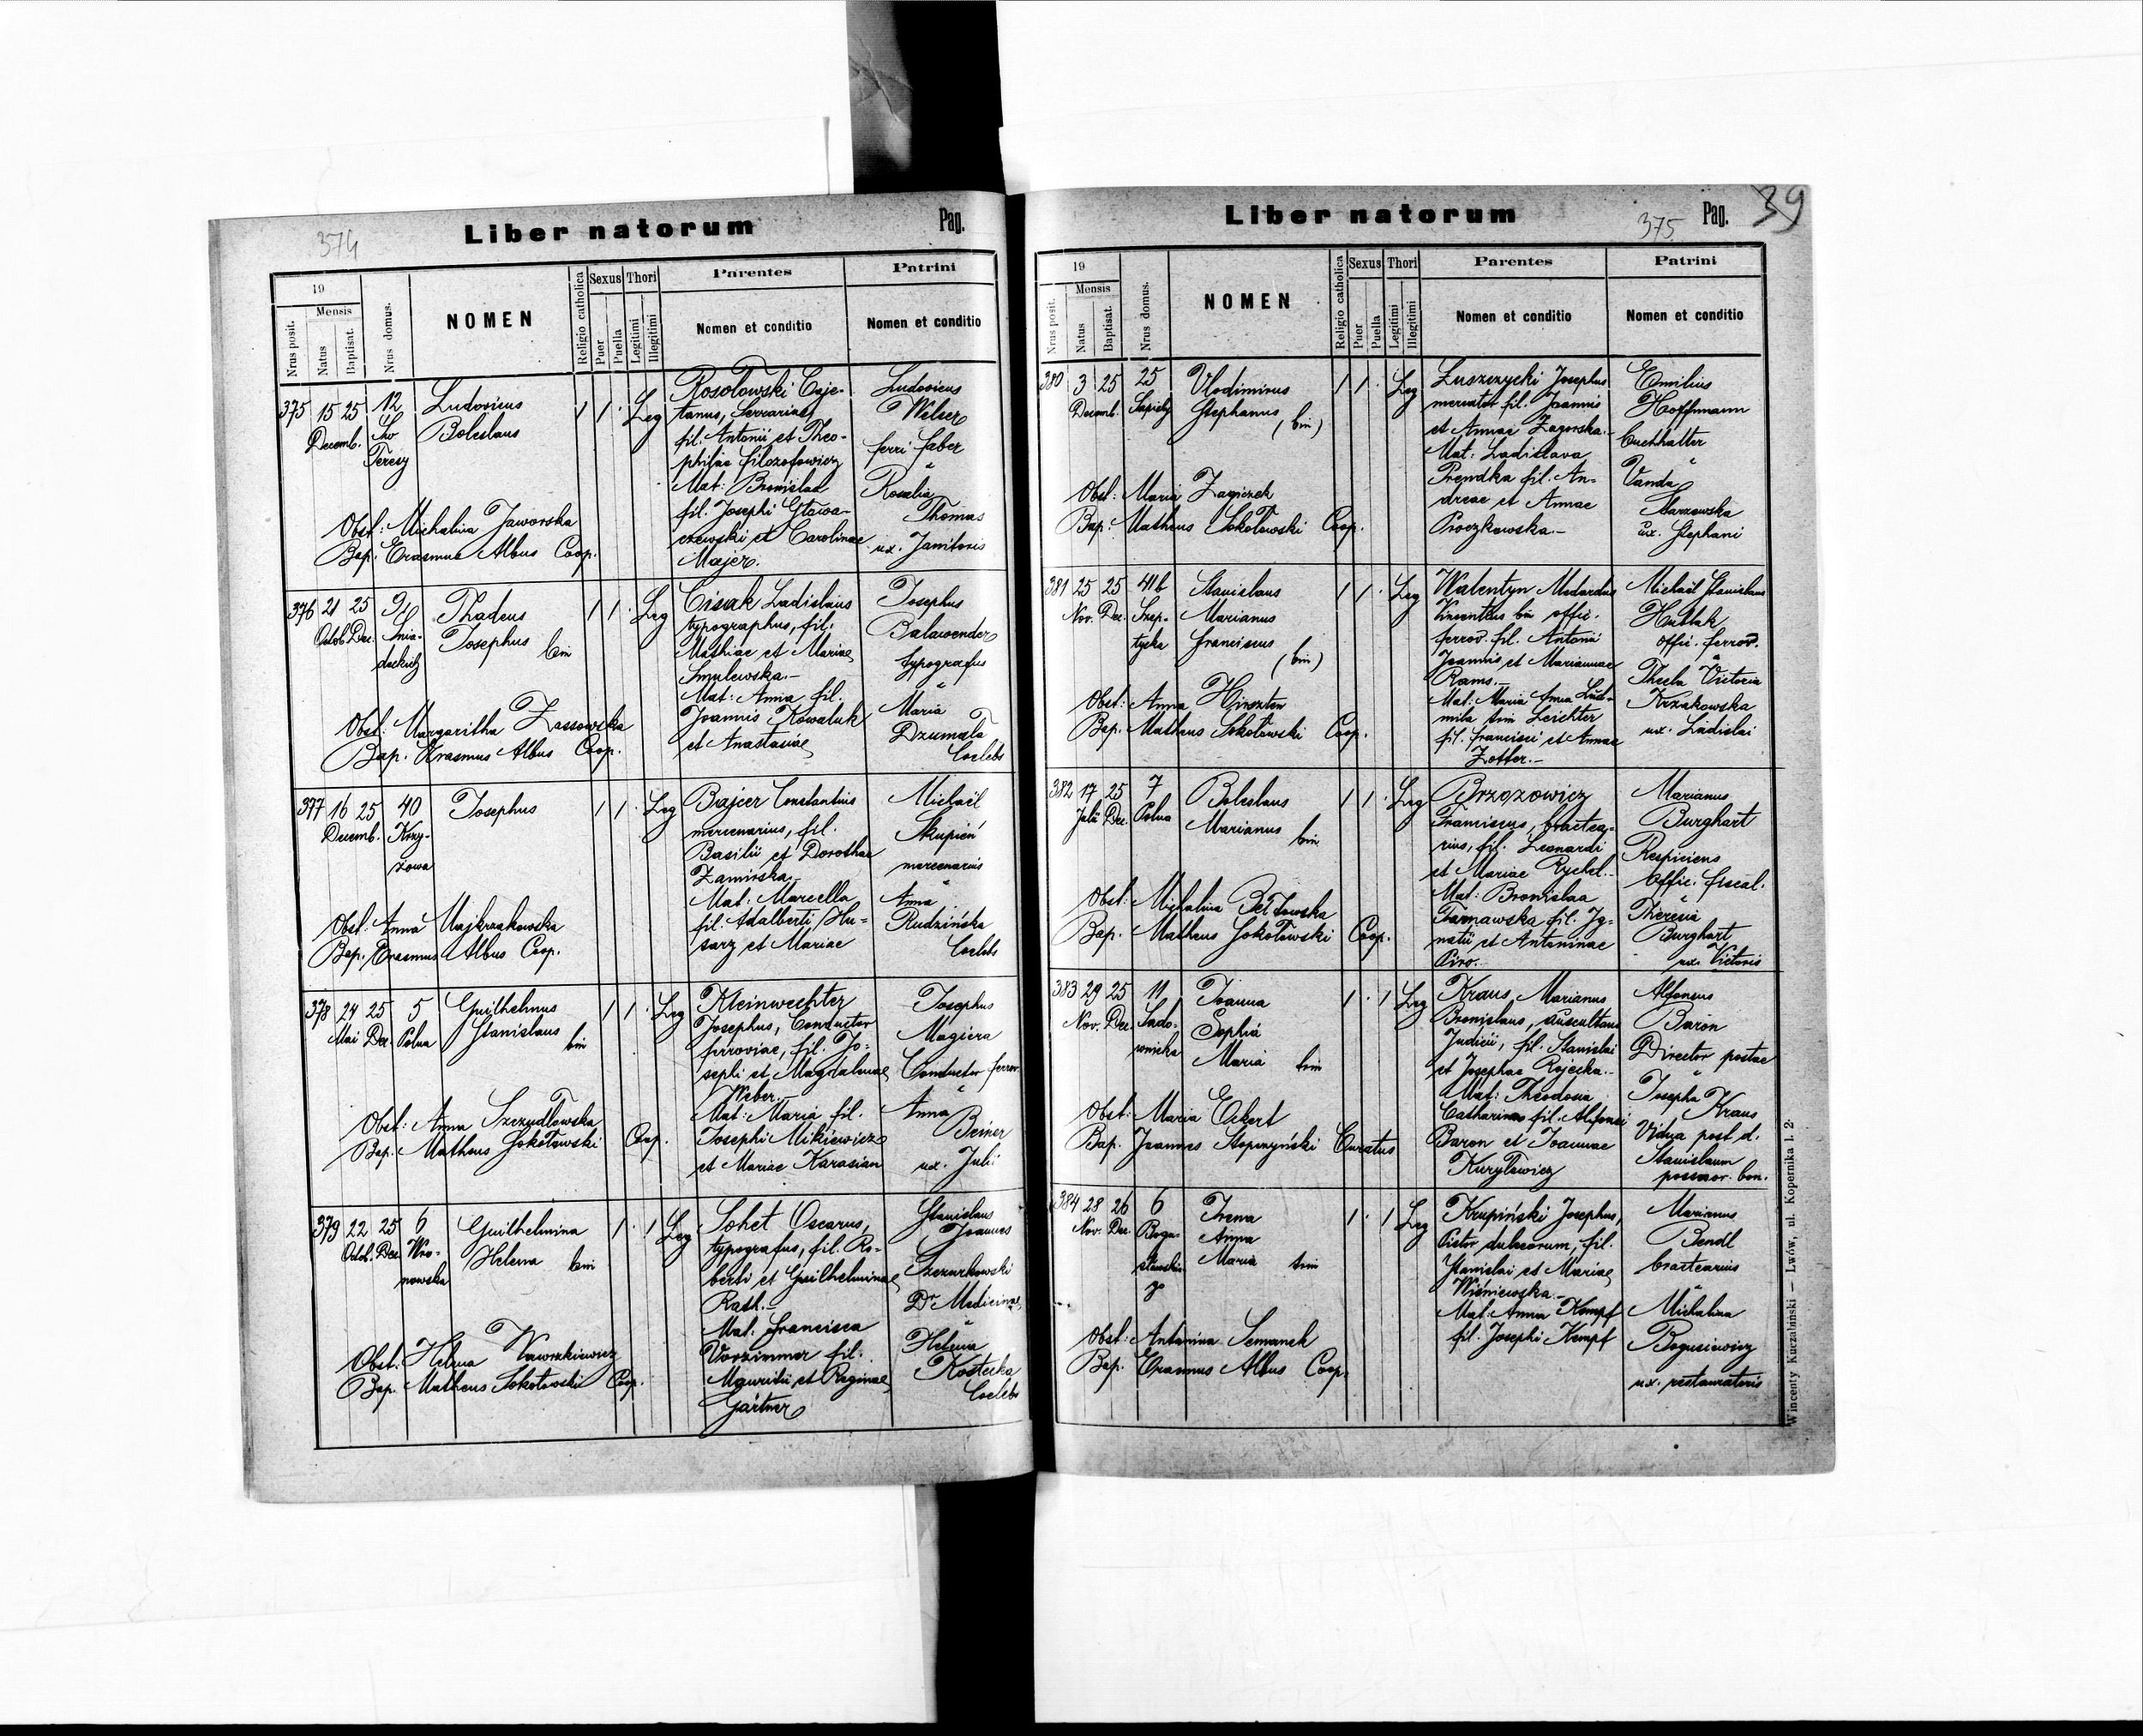 374
Liber natorum
Pag.
19
Mensis
Nrus posit.
Natus
Baptisat.
Nrus domus.
NOMEN
Religio catholica
Sexus
Puer
Puella
Thori
Legitimi
Illegitimi
Parentes
Nomen et conditio
Patrini
Nomen et conditio
375 15 25 Decemb. 12 Sw Teresy
Ludovicus
Boleslaus
1 1 Leg
Rosołowski Caje-
tanus, Serrarius,
fil. Antonii et Theo-
philiae Filozofowicz
Mat: Bronislaa
fil. Josephi Gława-
czewski et Carolinae
Majer.
Ludovicus
Welser
ferri faber
"
Rosalia
Thomas
ux. Janitoris
Obst: Michalina Jaworska
Bap. Erasmus Albus Coop.
376 21 25 Octob. Dec. Snia-
deckich
Thadeus
Josephus bin
1 1 Leg
Cisak Ladislaus
typographus, fil.
Mathiae et Mariae
Smulewska.-
Mat: Anna fil.
Joannis Kowaluk
et Anastasiae
Josephus
Balawender
typografus
"
Maria
Dzumała
Coelebs
Obst: Margaritha Zassowska
Bap. Erasmus Albus Coop.
377 16 25 Decemb. 40 Krzy-
zowa
Josephus
1 1 Leg
Bajcer Constantius
mercenarius, fil.
Basilii et Dorothae
Zamirska.-
Mat: Marcella
fil. Adalberti Hu-
sarz et Mariae
Michaël
Skupień
mercenarius
"
Anna
Rudzińska
Coelebs
Obst: Anna Majkrzakowska
Bap. Erasmus Albus Coop.
378 24 25 Mai Dec. 5 Polna
Guilhelmus
Stanislaus bin
1 1 Leg
Kleinwechter
Josephus, Conductor
ferroviae, fil. Jo-
sephi et Magdalenae
Weber.-
Mat: Maria fil.
Josephi Mikiewicz
et Mariae Karasian
Josephus
Magiera
Conductor ferrov.
"
Anna
Beiner
ux. Julii
Obst: Anna Szczudłowska
Bap. Matheus Sokołowski Coop.
379 22 25 Octob. Dec. 6 Wro-
nowska
Guilhelmina
Helena bin
1 1 Leg
Sohet Oscarus,
typografus, fil. Ro-
berti et Guilhelminae
Rath.-
Mat: Francisca
Vorzimmer fil.
Mauritii et Reginae
Gärtner
Stanislaus
Joannes
Szczurkowski
Dr Medicinae
"
Helena
Kostecka
Coelebs
Obst: Helena Wawrzkiewicz
Bap. Matheus Sokołowski Coop.
Liber natorum
375
Pag.
39
19
Mensis
Nrus posit.
Natus
Baptisat.
Nrus domus.
NOMEN
Religio catholica
Sexus
Puer
Puella
Thori
Legitimi
Illegitimi
Parentes
Nomen et conditio
Patrini
Nomen et conditio
380 3 25 Decemb. 25 Sapiehy
Vlodimirus
Stephanus (bin)
1 1 Leg
Łuszczycki Josephus
mercator fil. Joannis
et Annae Zagorska.-
Mat: Ladislava
Prendka fil. An-
dreae et Annae
Proczkowska.-
Emilius
Hoffmann
buchhalter
"
Vanda
Starzowska
ux. Stephani
Obst: Maria Zagiczek
Bap: Matheus Sokołowski Coop.
381 25 25 Nov. Dec. 41b Szep-
tycka
Stanislaus
Marianus
Franciscus (bin)
1 1 Leg
Walentyn Medardus
Vincentius bin offic.
ferrov. fil. Antonii
Joannis et Mariannae
Rams.-
Mat: Maria Anna Lud-
mila trin Leichter
fil. Francisci et Annae
Zotter.-
Michaël Stanislaus
Huttak
offic. ferrov.
"
Thecla Victoria
Krzakowska
ux. Ladislai
Obst: Anna Hirszten
Bap. Matheus Sokołowski Coop.
382 17 25 Julii Dec. 7 Polna
Boleslaus
Marianus bin
1 1 Leg
Brzozowicz
Franciscus, bractea-
rius, fil. Leonardi
et Mariae Rychel.-
Mat: Bronislaa
Tarnawska fil. Ig-
natii et Antoninae
Piro.-
Marianus
Burghart
Respiciens
offic. fiscal.
"
Theresia
Burghart
ux. Victoris
Obst: Michalina Bełtowska
Bap. Matheus Sokołowski Coop.
383 29 25 Nov. Dec. 11 Sado-
wnicka
Joanna
Sophia
Maria trin
1 1 Leg
Kraus Marianus
Bronislaus, auscultans
Judicii, fil. Stanislai
et Josephae Rojecka.-
Mat: Theodosia
Catharina fil. Alfonsi
Baron et Joannae
Kuryłowicz
Alfonsus
Baron
Director postae
"
Josepha Kraus
Vidua post d.
Stanislaum
possesor. bon.
Obst: Maria Eckert
Bap. Joannes Stopczyński Curatus
384 28 26 Nov. Dec. 6 Bogu-
sławskie-
go
Irena
Anna
Maria trin
1 1 Leg
Krupiński Josephus,
Pistor dulceorum, fil.
Stanislai et Mariae
Wiśniewska.-
Mat: Anna Kempf
fil. Josephi Kempf
Marianus
Bendl
bractearius
"
Michalina
Bogusiewicz
ux. restauratoris
Obst: Antonina Semanek
Bap. Erasmus Albus Coop.
Wincenty Kuczabiński — Lwów, ul. Kopernika l. 2.